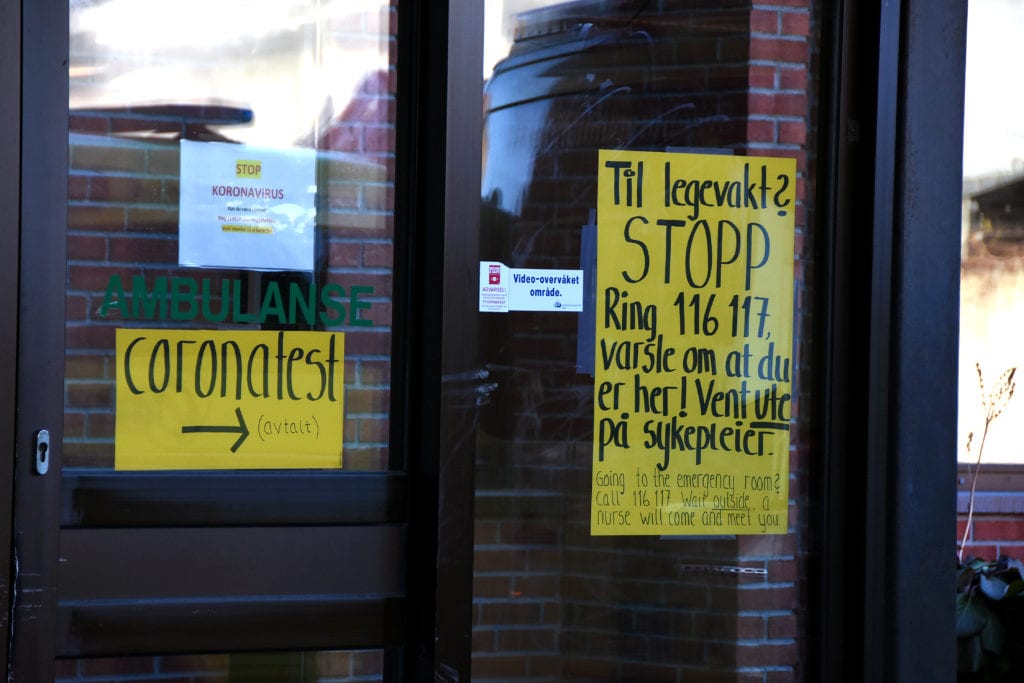 STOP
KORONAVIRUS
AMBULANSE
coronatest
→ (avtalt)
ADVARSEL!
Video-overvåket
område.
Til legevakt?
STOPP
Ring 116 117,
varsle om at du
er her! Vent ute
på sykepleier.
Going to the emergency room?
Call 116 117 Wait outside, a
nurse will come and meet you